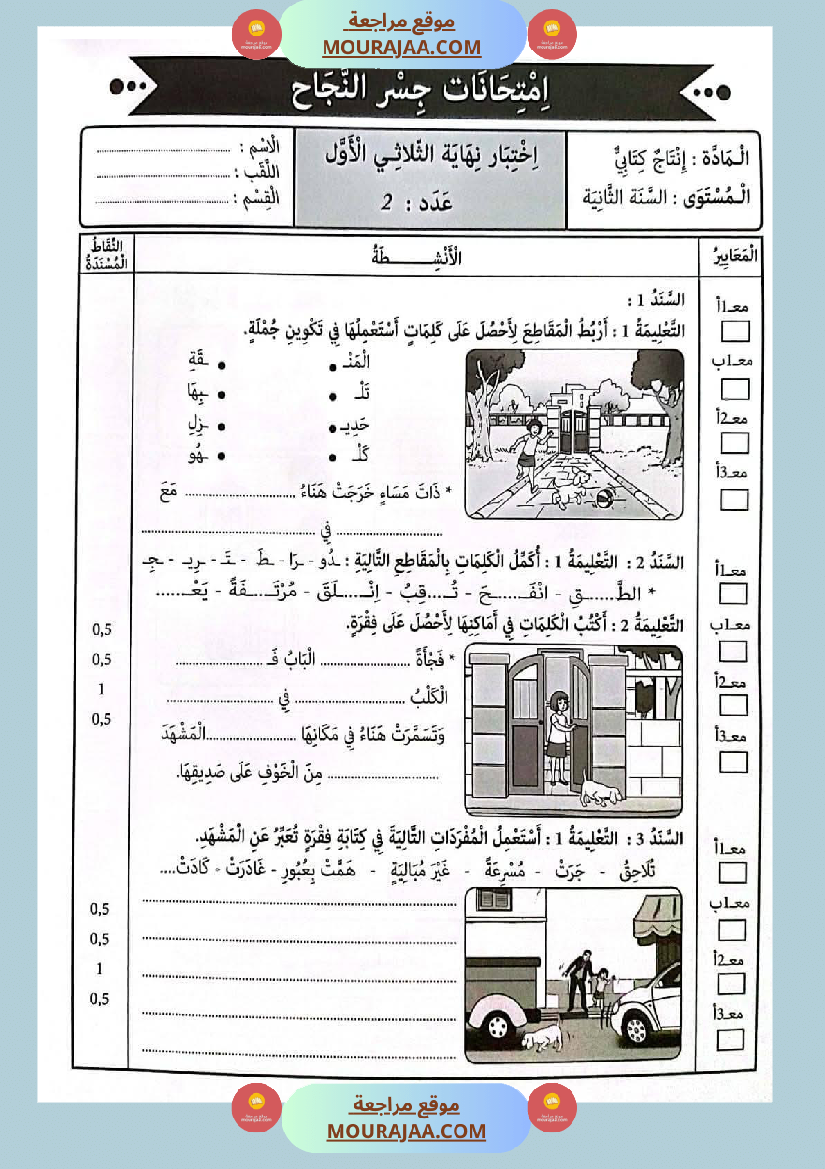 موقع مراجعة
MOURAJAA.COM
اِمْتِحَانَات جِسْرِ النَّجَاح
الْـمَادَّة : إِنْتَاجٌ كِتَابِيٌّ
الْـمُسْتَوَى : السَّنَة الثَّانِيَة
اِخْتِبَار نِهَايَة الثّلاثِـي الْأَوَّل
عَدَد : 2
الْاِسْم : ..............................
اللَّقَب : ..............................
الْقِسْم : ..............................
الْمَعَايِيرُ
الْأَنْشِـــــــطَةُ
النِّقَاطُ الْمُسْنَدَةُ
السَّنَدُ 1 :
معـ1أ
التَّعْلِيمَةُ 1 : أَرْبُطُ الْمَقَاطِعَ لِأَحْصُلَ عَلَى كَلِمَاتٍ أَسْتَعْمِلُهَا فِي تَكْوِينِ جُمْلَةٍ.
الْمَنْـ • • ـقَةِ
معـ1ب
تَلْـ • • ـبِهَا
معـ2أ
حَدِيـ • • ـزِلِ
كَلْـ • • ـهُو
معـ3أ
* ذَاتَ مَسَاءٍ خَرَجَتْ هَنَاءُ .............................. مَعَ
.............................. فِي ..............................
السَّنَدُ 2 : التَّعْلِيمَةُ 1 : أُكَمِّلُ الْكَلِمَاتِ بِالْمَقَاطِعِ التَّالِيَةِ : ـدُو - ـرَا - ـطَـ - ـتَـ - ـرِيـ - ـجِـ
معـ1أ
* الطَّ......ـقِ - انْفَـ......ـحَ - تُـ.....ـقِبُ - اِنْـ.....ـلَقَ - مُرْتَـ.....ـفَةً - يَعْـ......
التَّعْلِيمَةُ 2 : أَكْتُبُ الْكَلِمَاتِ فِي أَمَاكِنِهَا لِأَحْصُلَ عَلَى فِقْرَةٍ.
معـ1ب
0,5
* فَجْأَةً ...................... الْبَابُ فَـ ......................
0,5
معـ2أ
الْكَلْبُ .............................. فِي ..............................
1
معـ3أ
وَتَسَمَّرَتْ هَنَاءُ فِي مَكَانِهَا ......................الْمَشْهَدَ
0,5
.............................. مِنَ الْخَوْفِ عَلَى صَدِيقِهَا.
السَّنَدُ 3 : التَّعْلِيمَةُ 1 : أَسْتَعْمِلُ الْمُفْرَدَاتِ التَّالِيَةَ فِي كِتَابَةِ فِقْرَةٍ تُعَبِّرُ عَنِ الْمَشْهَدِ.
معـ1أ
تُلَاحِقُ - جَرَتْ - مُسْرِعَةً - غَيْرَ مُبَالِيَةٍ - هَمَّتْ بِعُبُورِ - غَادَرَتْ - كَادَتْ....
معـ1ب
0,5
معـ2أ
0,5
1
معـ3أ
0,5
موقع مراجعة
MOURAJAA.COM